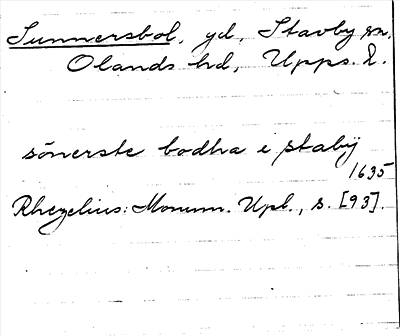 Sunnersbol, gd, Stavby sn,
Olands hd, Upps. l.
sönerste bodha i stabÿ
1635
Rhezelius: Monum. Upl., s. [93].